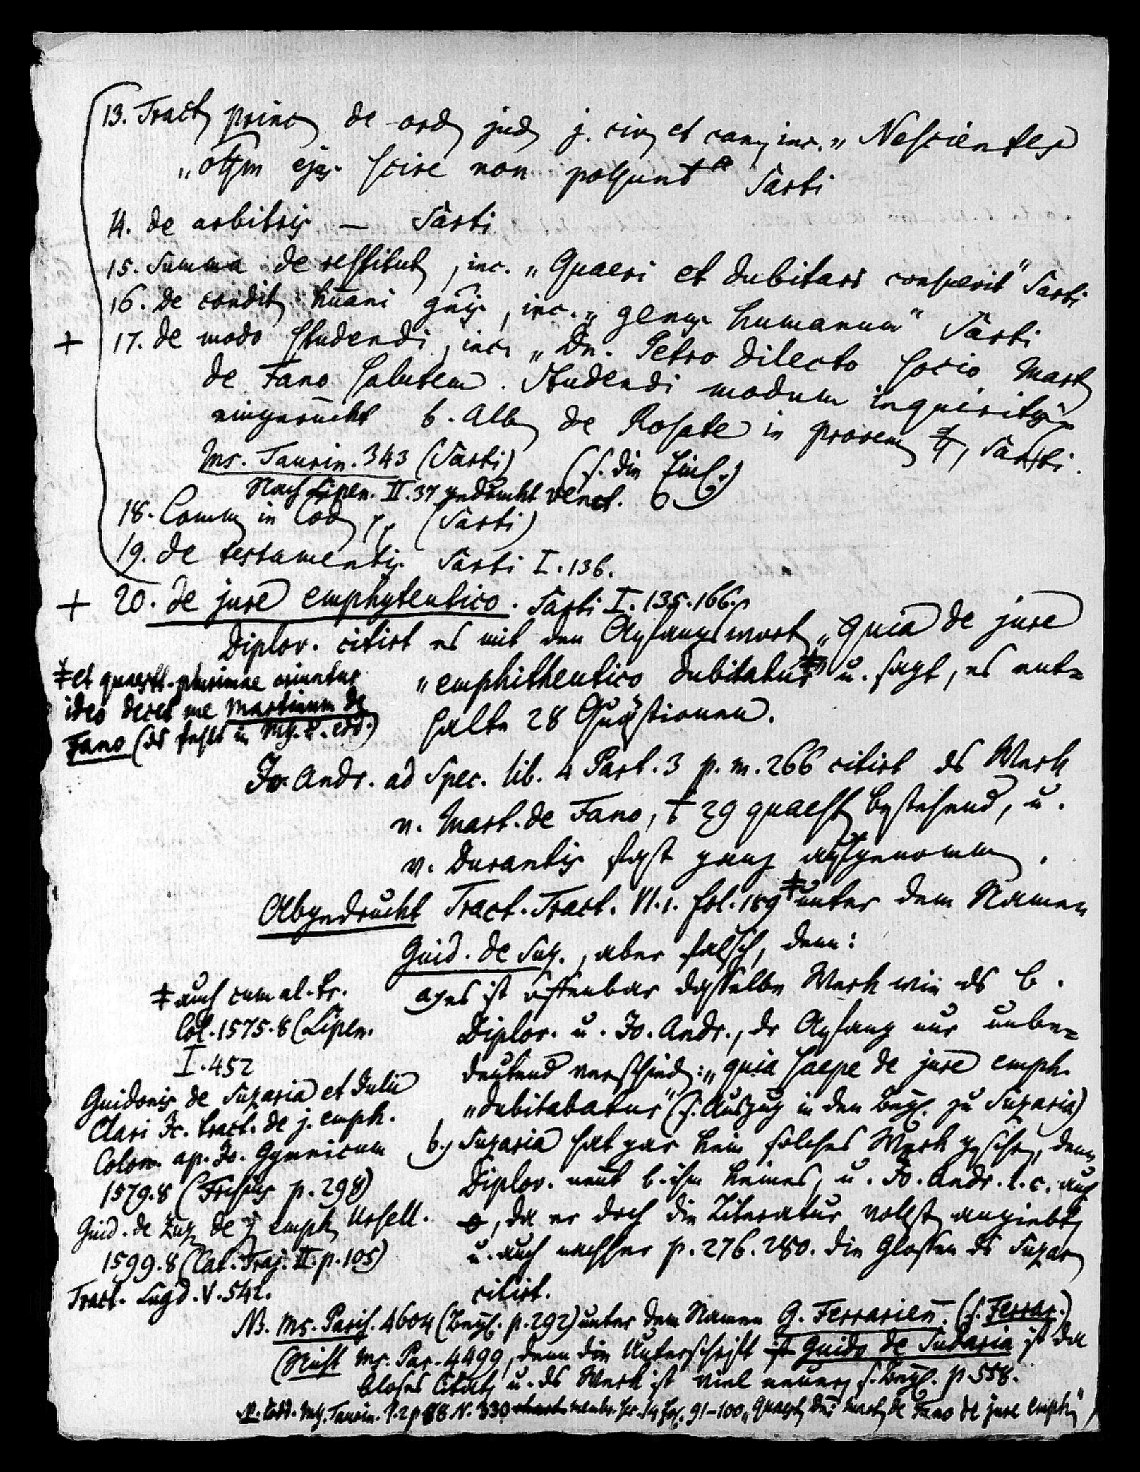 13. Tract princ de ord jud j. civ et can, inc. „Nescientes
„ejus scire non possunt“ Sarti
14. de arbitris — Sarti
15. Summa de restitut, inc. „Quaeri et dubitari consuevit“ Sarti
16. de condit. humani gnis, inc. „genus humanum“ Sarti
+ 17. de modo studendi, inc. „Dn. Petro dilecto socio Mart
de Fano salutem. Studendi modum inquiritis“
eingerückt b. Alb de Rosate in prooem ff, Sarti.
Ms. Taurin. 343 (Sarti) (s. die Einl.)
Nach Lipen. II. 37 gedruckt Venet.
18. Comm in Cod (Sarti)
19. de testamentis Sarti I. 136.
+ 20. de jure emphyteutico. Sarti I. 135. 166.
Diplov. citirt es mit den Anfangswort „quia de jure
„emphitheutico dubitatur ‡“ u. sagt, es ent=
halte 28 Quästionen.
‡ et quaestt. plurimae oriuntur
ideo decet me Martinum de
Fano (ds fehlt in Ms. u. edd.)
Jo. Andr. ad Spec. lib. 4 Part. 3 p. m. 266 citirt ds Werk
v. Mart. de Fano, 29 quaest bestehend, u.
v. Durantis fast ganz aufgenommen.
Abgedruckt Tract. Tract. VI. 1. fol. 189 ‡ unter dem Namen
Guid. de Suz., aber falsch, denn:
a) es ist offenbar dasselbe Werk wie ds b.
Diplov. u. Jo. Andr., dr Anfang nur unbe=
deutend verschied.: „quia saepe de jure emph.
„dubitabatur“ (s. Auszug in den Beyl. zu Suzaria)
b) Suzaria hat gar kein solches Werk geschr, denn
Diplov. nent b. ihm keines, u. Jo. Andr. l. c. auch
, da er doch die Literatur vollst angiebt,
u. auch nachher p. 276. 280. die Glossen ds Suzar
citirt.
‡ auch cum al. tr.
Col. 1575. 8 (Lipen.
I. 452
Guidonis de Suzaria et Julii
Clari Jc. tract. de j. emph.
Colon. ap. Jo. Gymnicum
1579. 8 (Frisius p. 298)
Guid. de Suz de j emph Ursell.
1599. 8 (Cat. Traj. II. p. 105)
Tract. Lugd. V. 542.
NB. Ms. Paris. 4604 (Beyl. p. 292) unter dem Namen G. Ferrarien. (s. Ferrar.)
(Nicht Ms. Par. 4499, denn die Unterschrift ist Guido de Sudaria ist da
bloses Citat, u. ds Werk ist viel neuer, s. Beyl. p. 558.
Codd. Ms. Taurin. T. 2 p 88 N. 339 91–100 „Quaest dni Mart de Fano de jure emph“